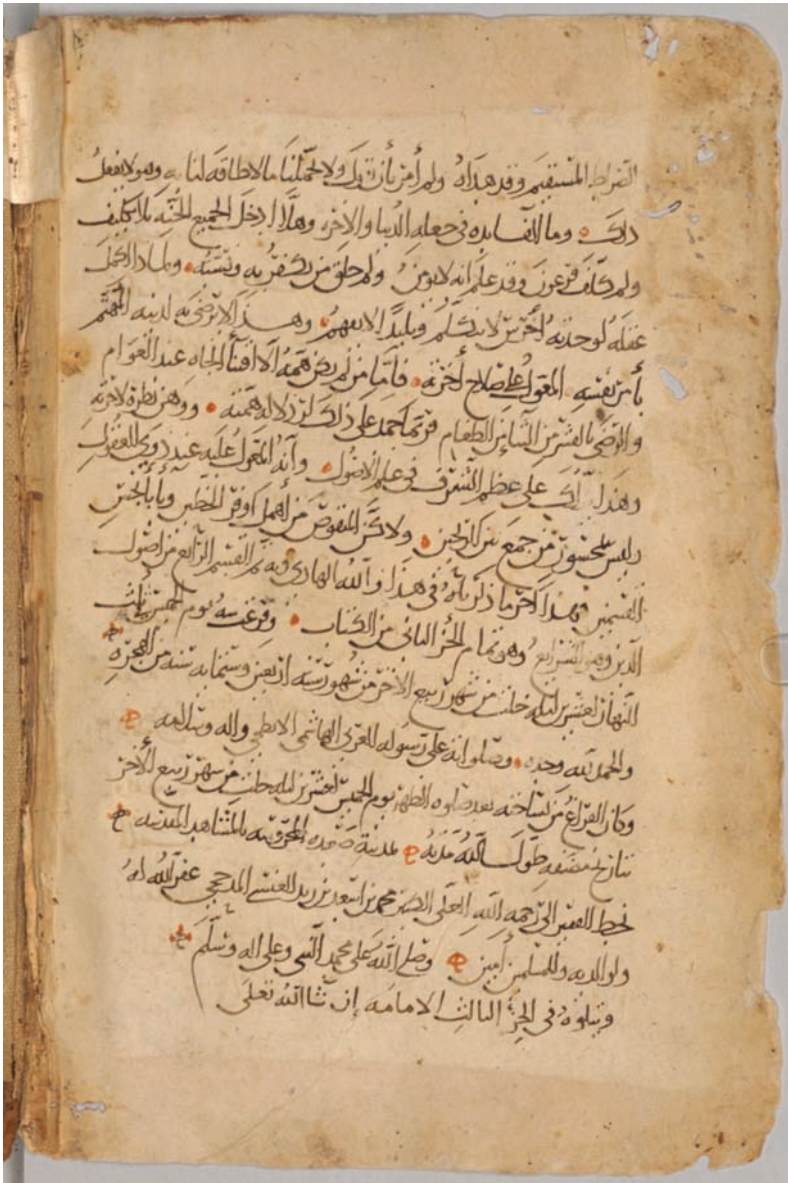 الصراط المستقيم وقد هداه ولم أمر بأن نقول ولا تحملنا ما لا طاقة لنا به وهو لا يفعل
ذلك وما الفايده في جعله الدنيا والاخره وهلا ادخل الجميع الجنه بلا تكليف
ولم كلف فرعون وقد علم انه لا يومن ولم خلق من يكفر به ويسبه ولماذا اكمل
عقله لو جدته أخرس لا يتكلم وبليدا لا يفهم وهذا لا يرضى به لدينه المهتم
بأمر نفسه المعول على صلاح أخرته فأما من لم يكن همه الا اقتنا الجاه عند العوام
والرضى بالقشر من الطعام فربما حمد على ذلك لنزالة همته وهو نظره لاخرته
وهذا على عظم الشرف في علم الاصول وأنه المعول عليه عند ذوي العقول
وليس من جمع بين ولا كن المنقوص من أهمل أوفر الحظين وبأ بأبخس
القسمين فهذا آخر ما ذكرناه في هذا والله الهادي وبه تم القسم الرابع من اصول
الدين وهو الشرايع وهو تمام الجز الثاني من الكتاب وفرغت منه يوم الخميس ثلث
النهار لعشرين ليله خلت من شهر ربيع الآخر من شهور سنه اربعين وستمايه سنه من الهجره
والحمد لله وحده وصلواته على رسوله العربي الهاشمي الابطحي واله وسلامه
وكان الفراغ من نساخته بعد صلوه الظهر يوم الخميس لعشرين ليله خلت من شهر ربيع الآخر
بتاريخ مصنفه طول الله مدته بمدينة صعده المحروسه بالمشاهد المقدسه
بخط الفقير الى رحمه الله العلي الكبير محمد بن اسعد بن زيد العنسي المذحجي غفر الله له
ولوالديه وللمسلمين أمين وصلى الله على محمد النبي وعلى اله وسلم
ويتلوه في الجزء الثالث الامامه إن شا الله تعلى